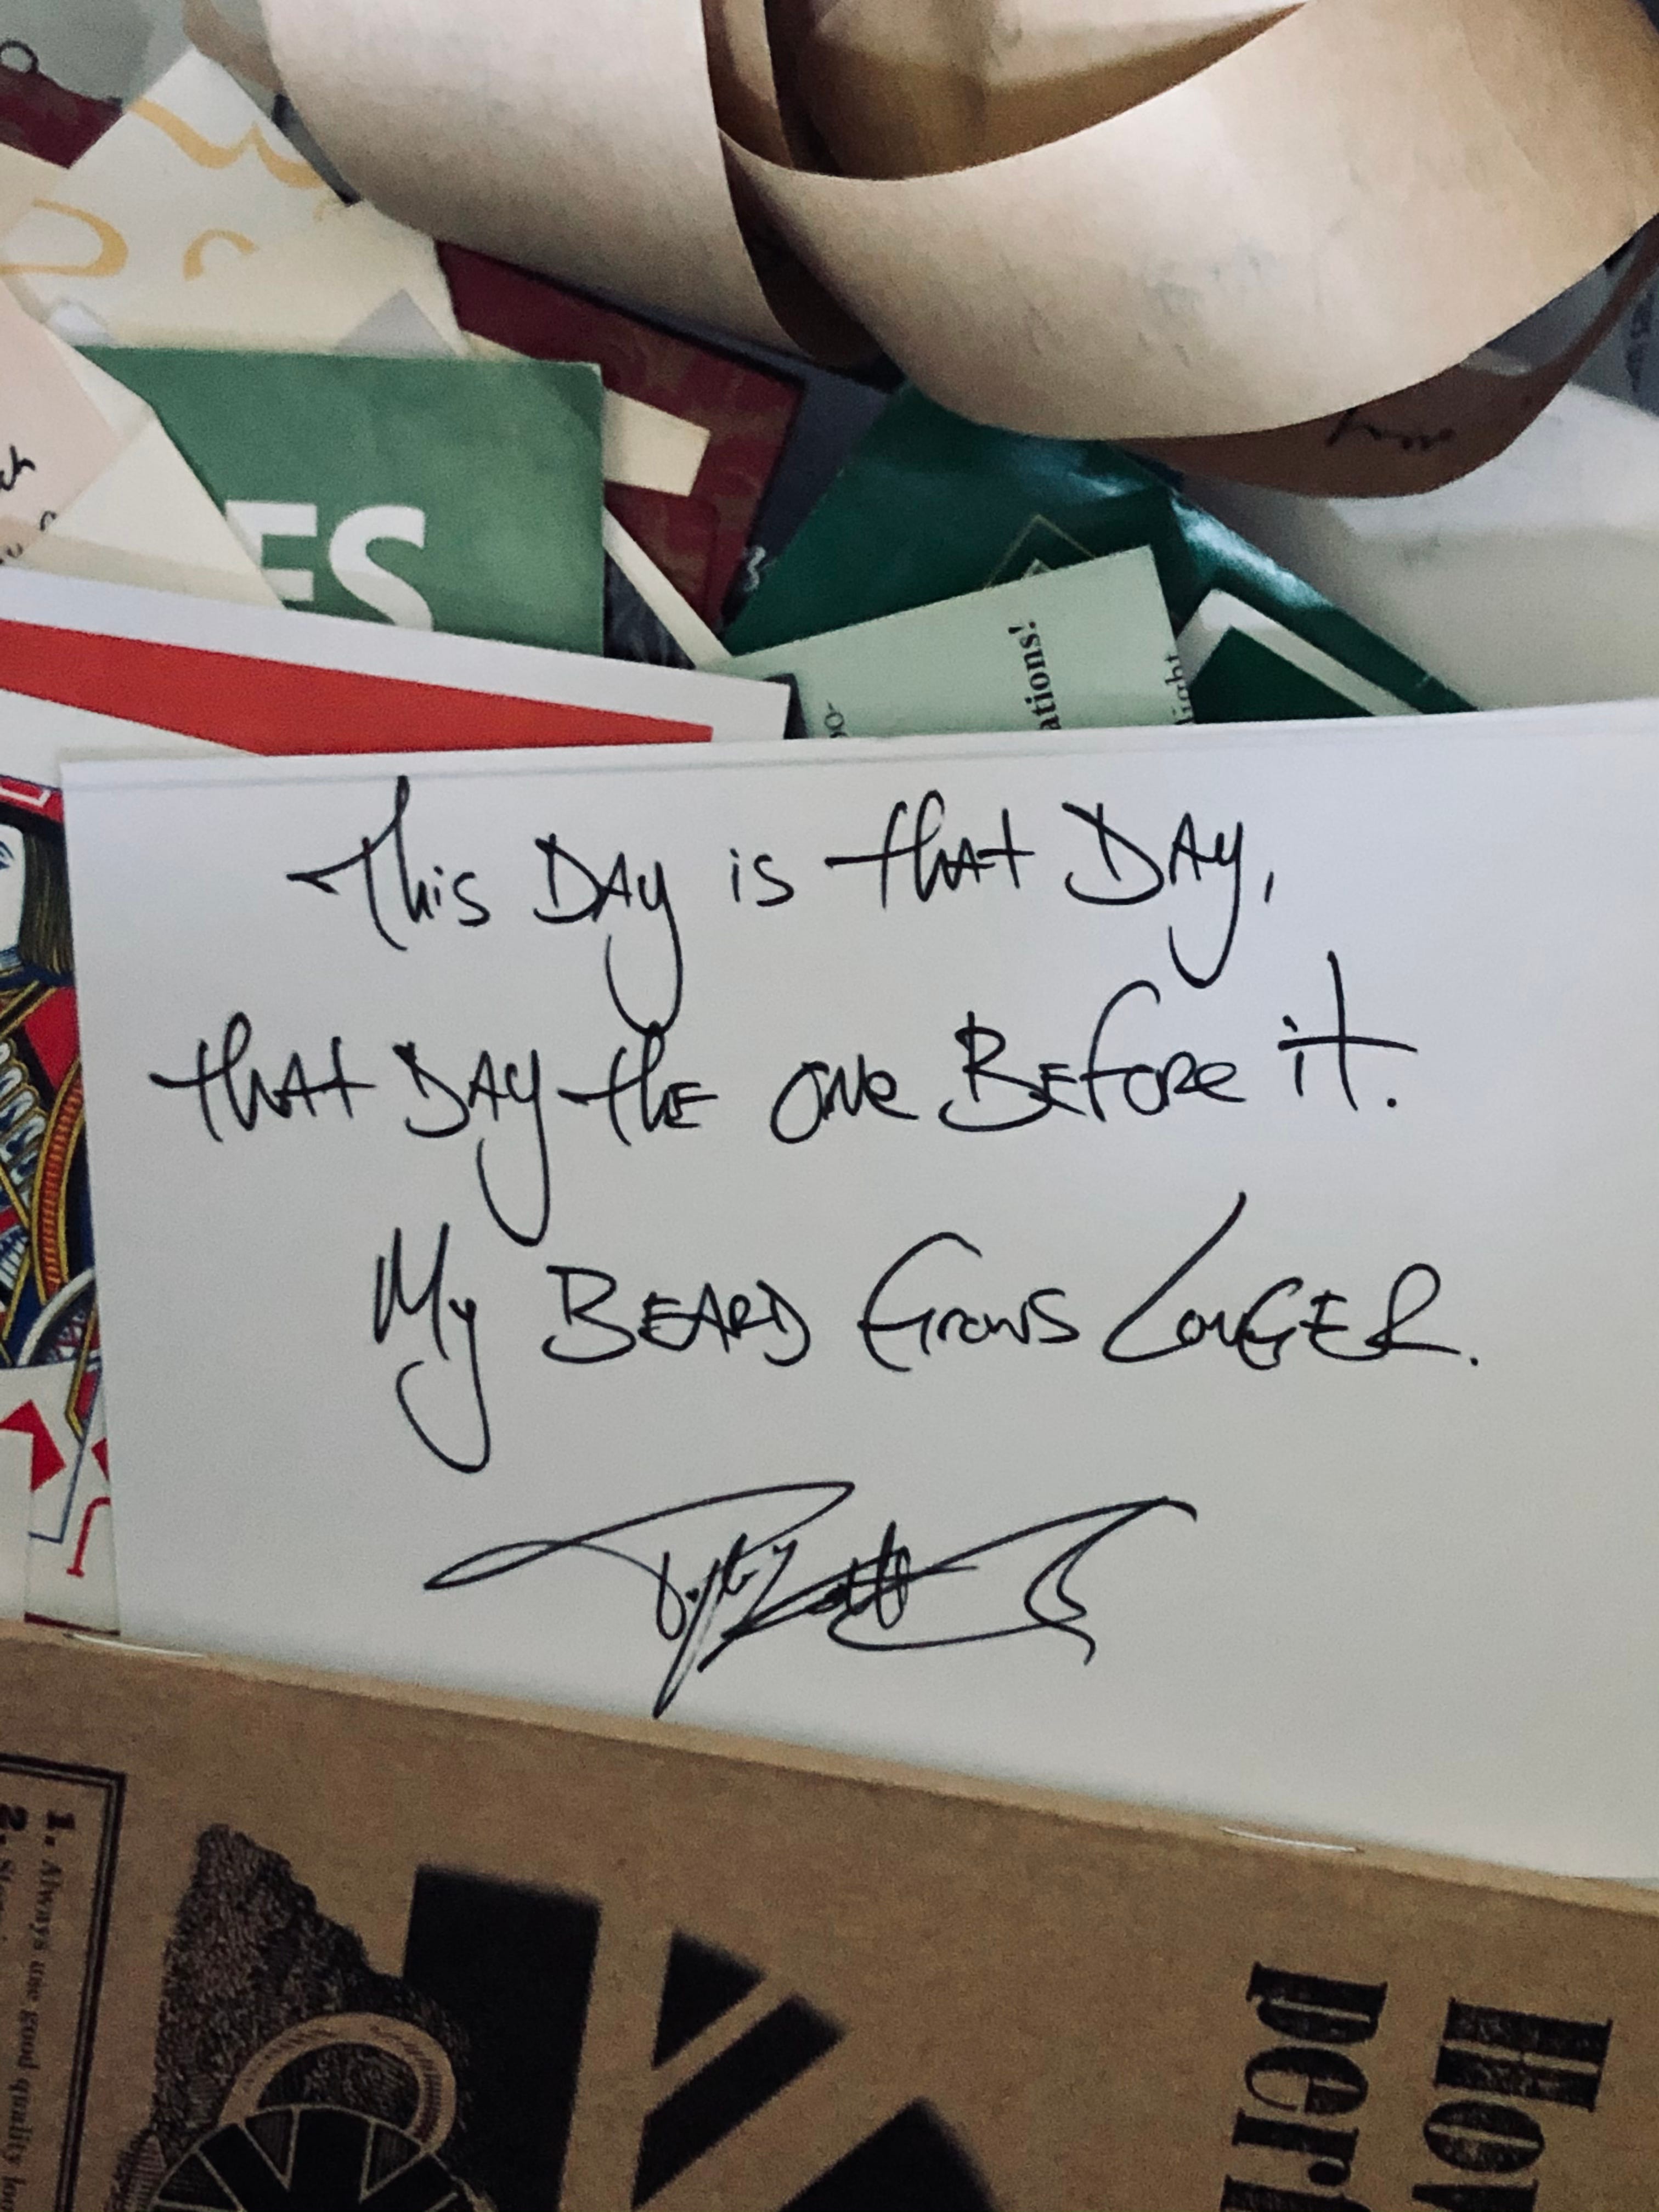 ES
ations!
light
This Day is that Day,
that Day the one Before it.
My Beard Grows Longer.
J
1. Always use good quality
2.